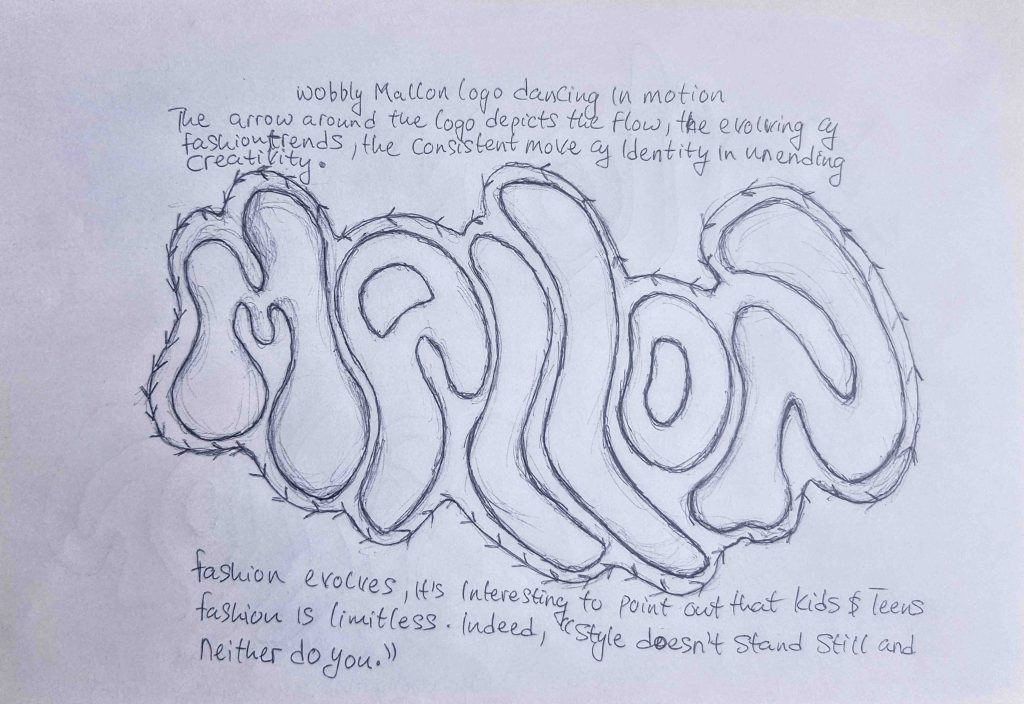 wobbly Mallon logo dancing in motion
The arrow around the logo depicts the flow, the evolving of
fashion trends, the consistent move of Identity in unending
creativity.
MALLON
fashion evolves, it's interesting to point out that kids & Teens
fashion is limitless. Indeed, "Style doesn't Stand Still and
Neither do you."